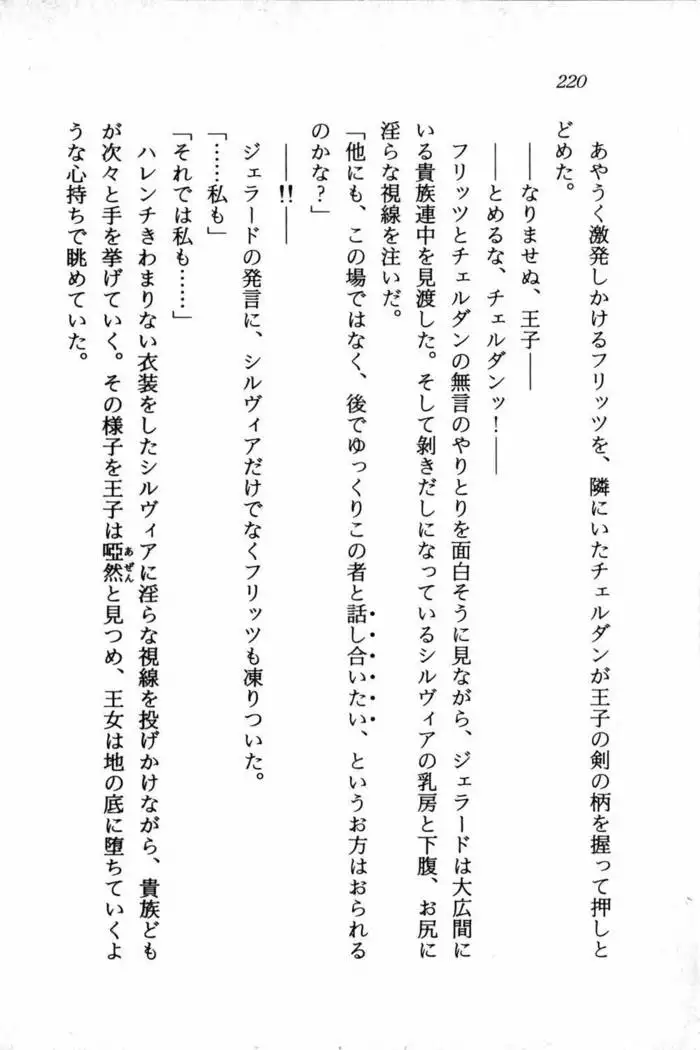 220
あやうく激発しかけるフリッツを、隣にいたチェルダンが王子の剣の柄を握って押しと
どめた。
――なりませぬ、王子――
――とめるな、チェルダンッ！――
フリッツとチェルダンの無言のやりとりを面白そうに見ながら、ジェラードは大広間に
いる貴族連中を見渡した。そして剥きだしになっているシルヴィアの乳房と下腹、お尻に
淫らな視線を注いだ。
「他にも、この場ではなく、後でゆっくりこの者と話し合いたい、というお方はおられる
のかな？」
――!!――
ジェラードの発言に、シルヴィアだけでなくフリッツも凍りついた。
「……私も」
「それでは私も……」
ハレンチきわまりない衣装をしたシルヴィアに淫らな視線を投げかけながら、貴族ども
が次々と手を挙げていく。その様子を王子は啞然と見つめ、王女は地の底に堕ちていくよ
あぜん
うな心持ちで眺めていた。